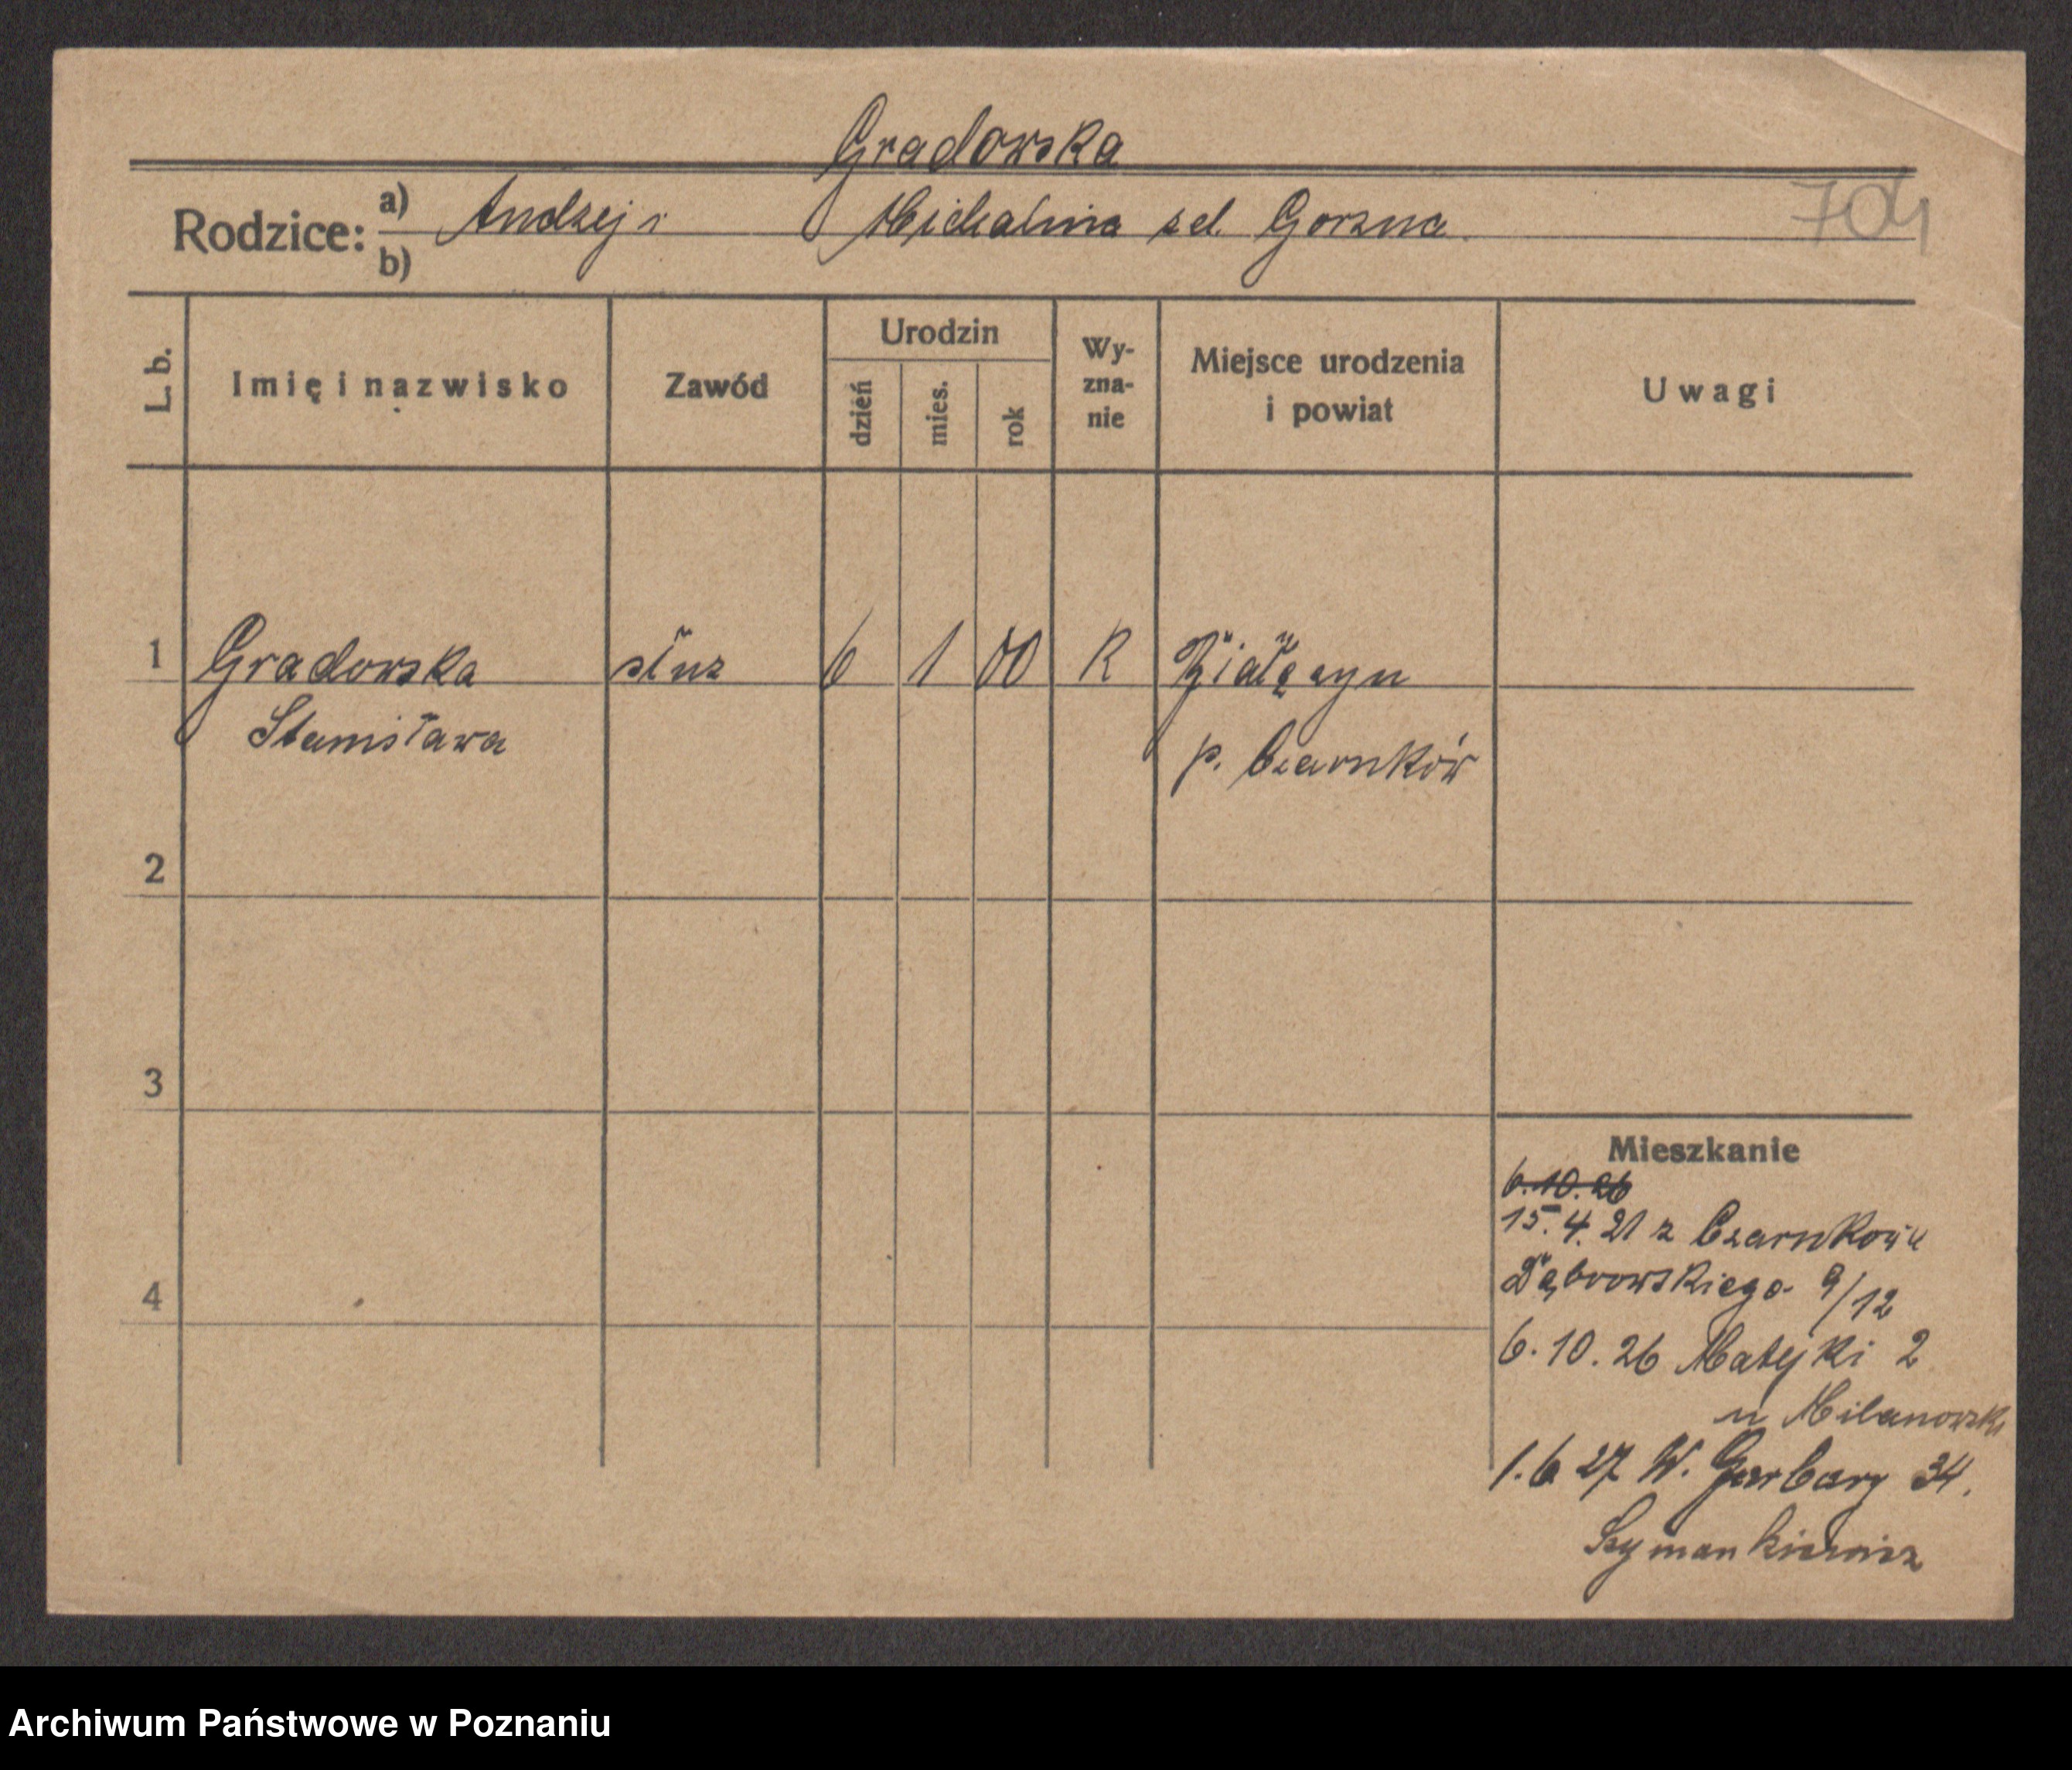 Gradowska
Rodzice: a) Andzej i Michalina zd. Gorzna
b)
704
L. b.
Imię i nazwisko
Zawód
Urodzin
dzień
mies.
rok
Wy-
zna-
nie
Miejsce urodzenia
i powiat
Uwagi
1 Gradowska służ 6 1 00 R
Stanisława
p. Czarnków
2
3
4
Mieszkanie
6.10.26
15.4.21 z Czarnkowa
Dąbrowskiego 9/12
6.10.26 Matejki 2
u Milanowski
1.6 27 W. Garbary 34.
Szymankiewicz
Archiwum Państwowe w Poznaniu